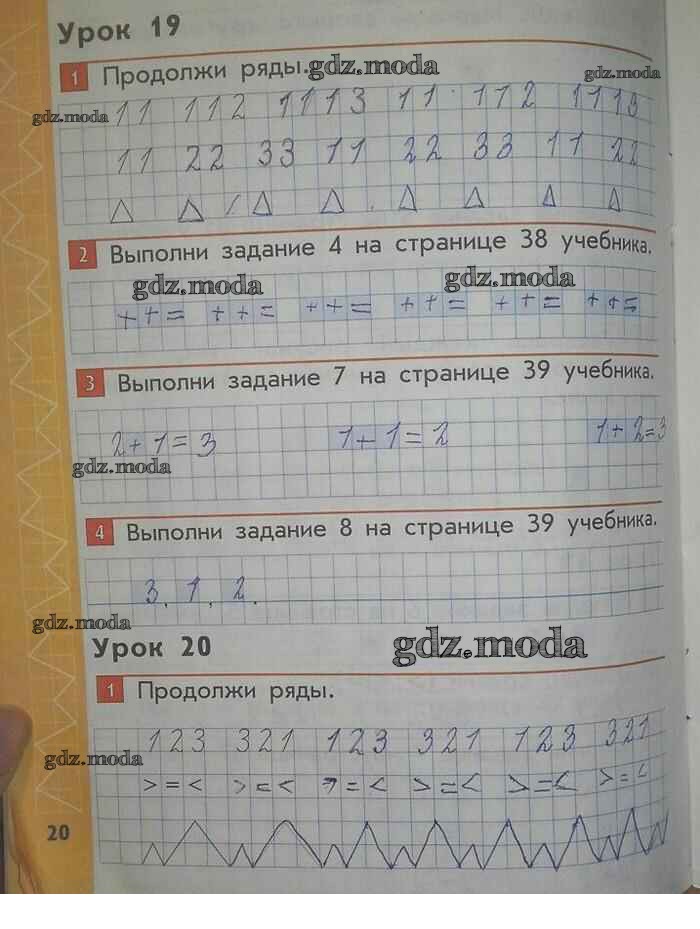 Урок 19
1 Продолжи ряды. gdz.moda gdz.moda
gdz.moda
11 112 1113 11 112 1113
11 22 33 11 22 33 11 22
2 Выполни задание 4 на странице 38 учебника.
gdz.moda gdz.moda
+ + = + + = + + = + + = + + = + + =
3 Выполни задание 7 на странице 39 учебника.
2+1=3 1+1=2 1+2=3
gdz.moda
4 Выполни задание 8 на странице 39 учебника.
3, 1, 2.
gdz.moda
Урок 20 gdz.moda
1 Продолжи ряды.
123 321 123 321 123 321
gdz.moda
>=< >=< >=< >=< >=< >=<
20